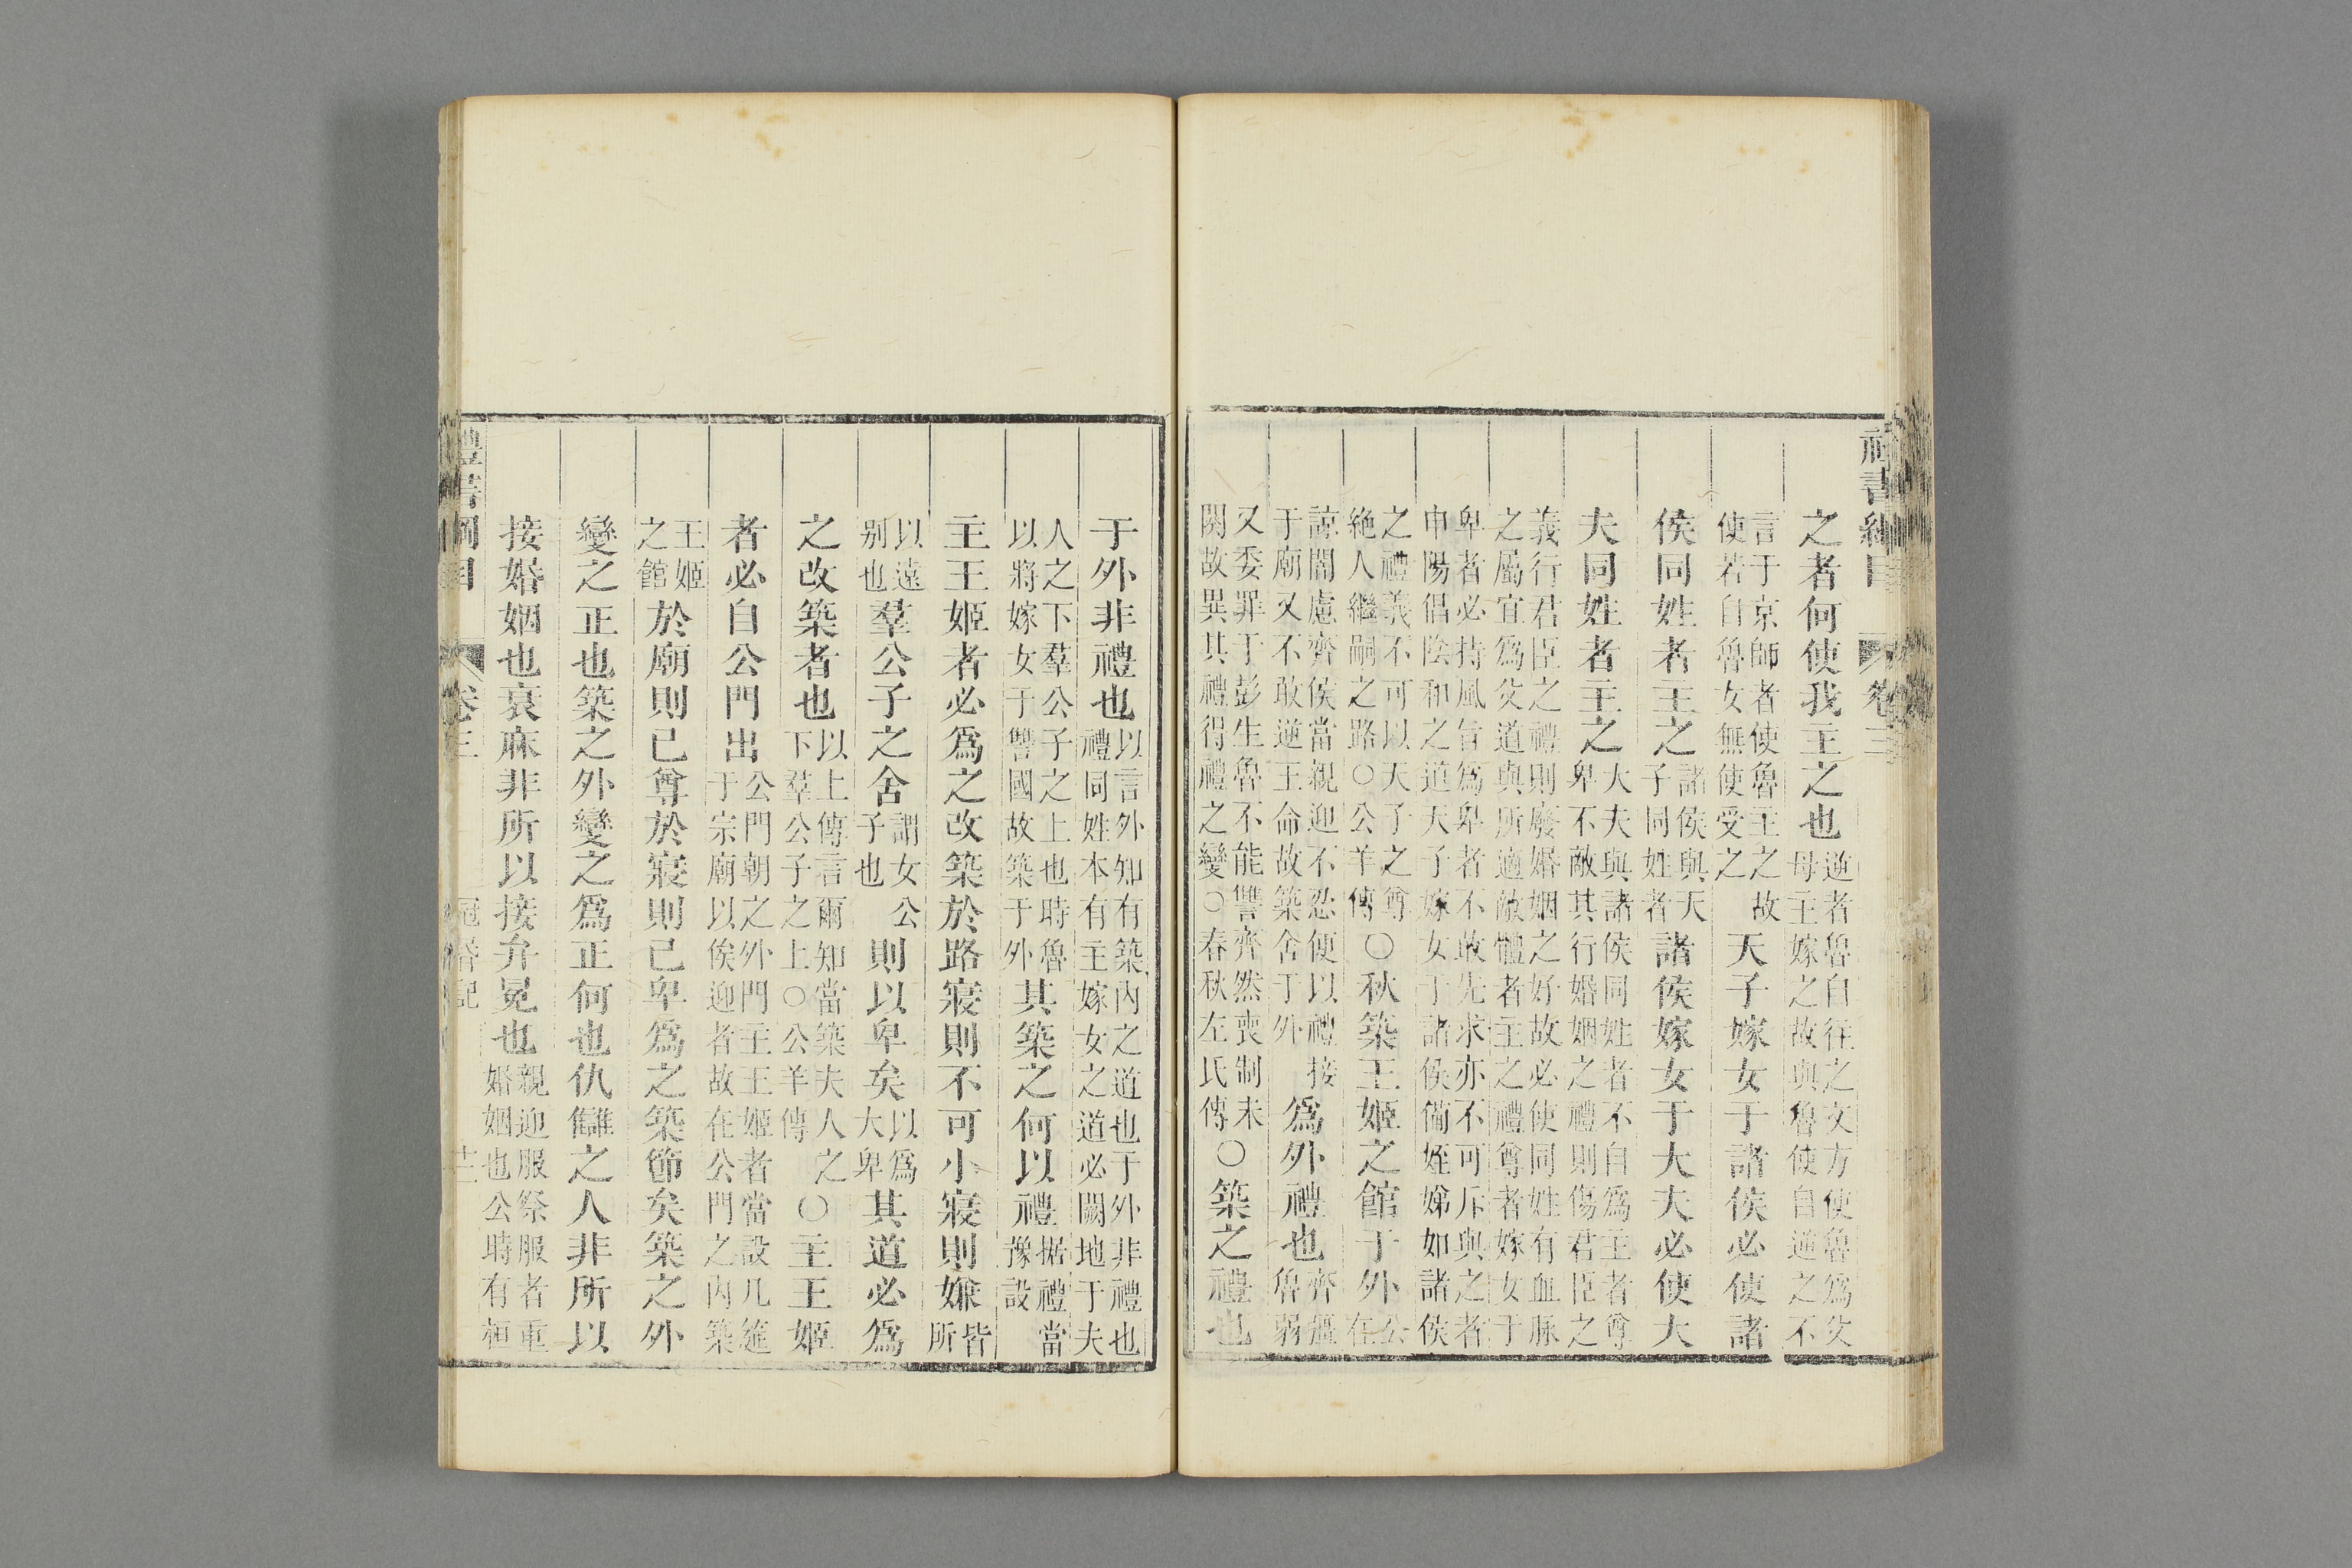 禮書綱目 卷三
之者何使我主之也逆者魯自往之文方使魯爲父母主嫁之故與魯使自逆之不
言于京師者使魯主之故使若自魯女無使受之天子嫁女于諸侯必使諸
侯同姓者主之諸侯與天子同姓者諸侯嫁女于大夫必使大
夫同姓者主之大夫與諸侯同姓者不自爲主者尊卑不敵其行婚姻之禮則傷君臣之
義行君臣之禮則廢婚姻之好故必使同姓有血脉之屬宜爲父道與所適敵體者主之禮尊者嫁女于
卑者必持風旨爲卑者不敢先求亦不可斥與之者申陽倡陰和之道天子嫁女于諸侯備姪娣如諸侯
之禮義不可以天子之尊絶人繼嗣之路○公羊傳○秋築王姬之館于外公在
諒闇慮齊侯當親迎不忍便以禮接于廟又不敢逆王命故築舍于外爲外禮也齊彊魯弱
又委罪于彭生魯不能讐齊然喪制未闋故異其禮得禮之變○春秋左氏傳○築之禮也
于外非禮也以言外知有築內之道也于外非禮也禮同姓本有主嫁女之道必闕地于夫
人之下羣公子之上也時魯以將嫁女于讐國故築于外其築之何以禮据禮當豫設
主王姬者必爲之改築於路寢則不可小寢則嫌皆所
以遠別也羣公子之舍謂女公子也則以卑矣以爲大卑其道必爲
之改築者也以上傳言爾知當築夫人之下羣公子之上○公羊傳○主王姬
者必自公門出公門朝之外門主王姬者當設几筵于宗廟以俟迎者故在公門之內築
王姬之館於廟則已尊於寢則已卑爲之築節矣築之外
變之正也築之外變之爲正何也仇讎之人非所以
接婚姻也衰麻非所以接弁冕也親迎服祭服者重婚姻也公時有桓
禮書綱目 卷三 冠昏記